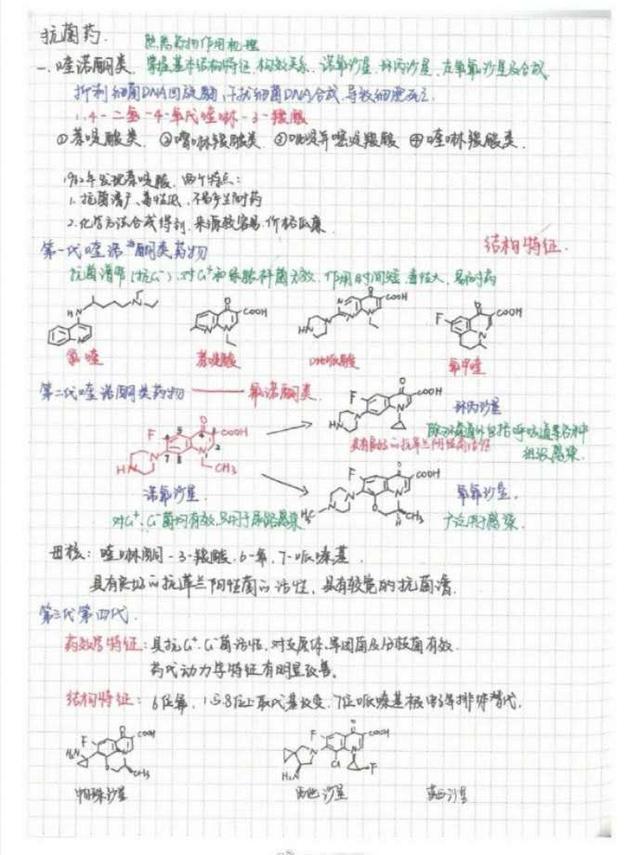 抗菌药.
熟悉药物作用机理
一. 喹诺酮类. 掌握基本结构特征, 构效关系. 诺氟沙星. 环丙沙星. 左氧氟沙星及合成
抑制细菌DNA回旋酶, 干扰细菌DNA合成, 导致细菌死亡.
1.4-二氢-4-氧代喹啉-3-羧酸
①萘啶酸类. ②噌啉羧酸类. ③吡啶并嘧啶羧酸 ④喹啉羧酸类.
1962年发现萘啶酸. 两个特点:
1. 抗菌谱广、毒性低、不易产生耐药
2. 化学方法合成得到. 来源较容易. 价格低廉.
第一代喹诺酮类药物
结构特征.
抗菌谱窄(抗G⁻). 对G⁺和绿脓杆菌无效. 作用时间短. 毒性大. 易耐药
HN N
N N COOH
HN N N N COOH
F N COOH
氯喹
萘啶酸
吡哌酸
氟甲喹
第二代喹诺酮类药物 —— 氟诺酮类.
F COOH HN N N
环丙沙星
具有良好的抗革兰阴性菌活性
组织感染.
F COOH HN N N CH₃
诺氟沙星.
F COOH N N O N CH₃
氧氟沙星.
对G⁺、G⁻菌均有效, 只用于尿路感染
广泛用于感染.
母核: 喹啉酮-3-羧酸. 6-氟, 7-哌嗪基.
具有良好的抗革兰阴性菌的活性, 具有较宽的抗菌谱.
第三代第四代.
药效学特征: 具抗G⁺. G⁻菌活性. 对支原体、军团菌及分枝菌有效.
药代动力学特征有明显改善.
结构特征: 6位氟, 1、5、8位上取代基改变. 7位哌嗪基被电子等排体替代.
F COOH H₂N O N CH₃
F COOH N Cl N H₂N F
帕珠沙星
西他沙星